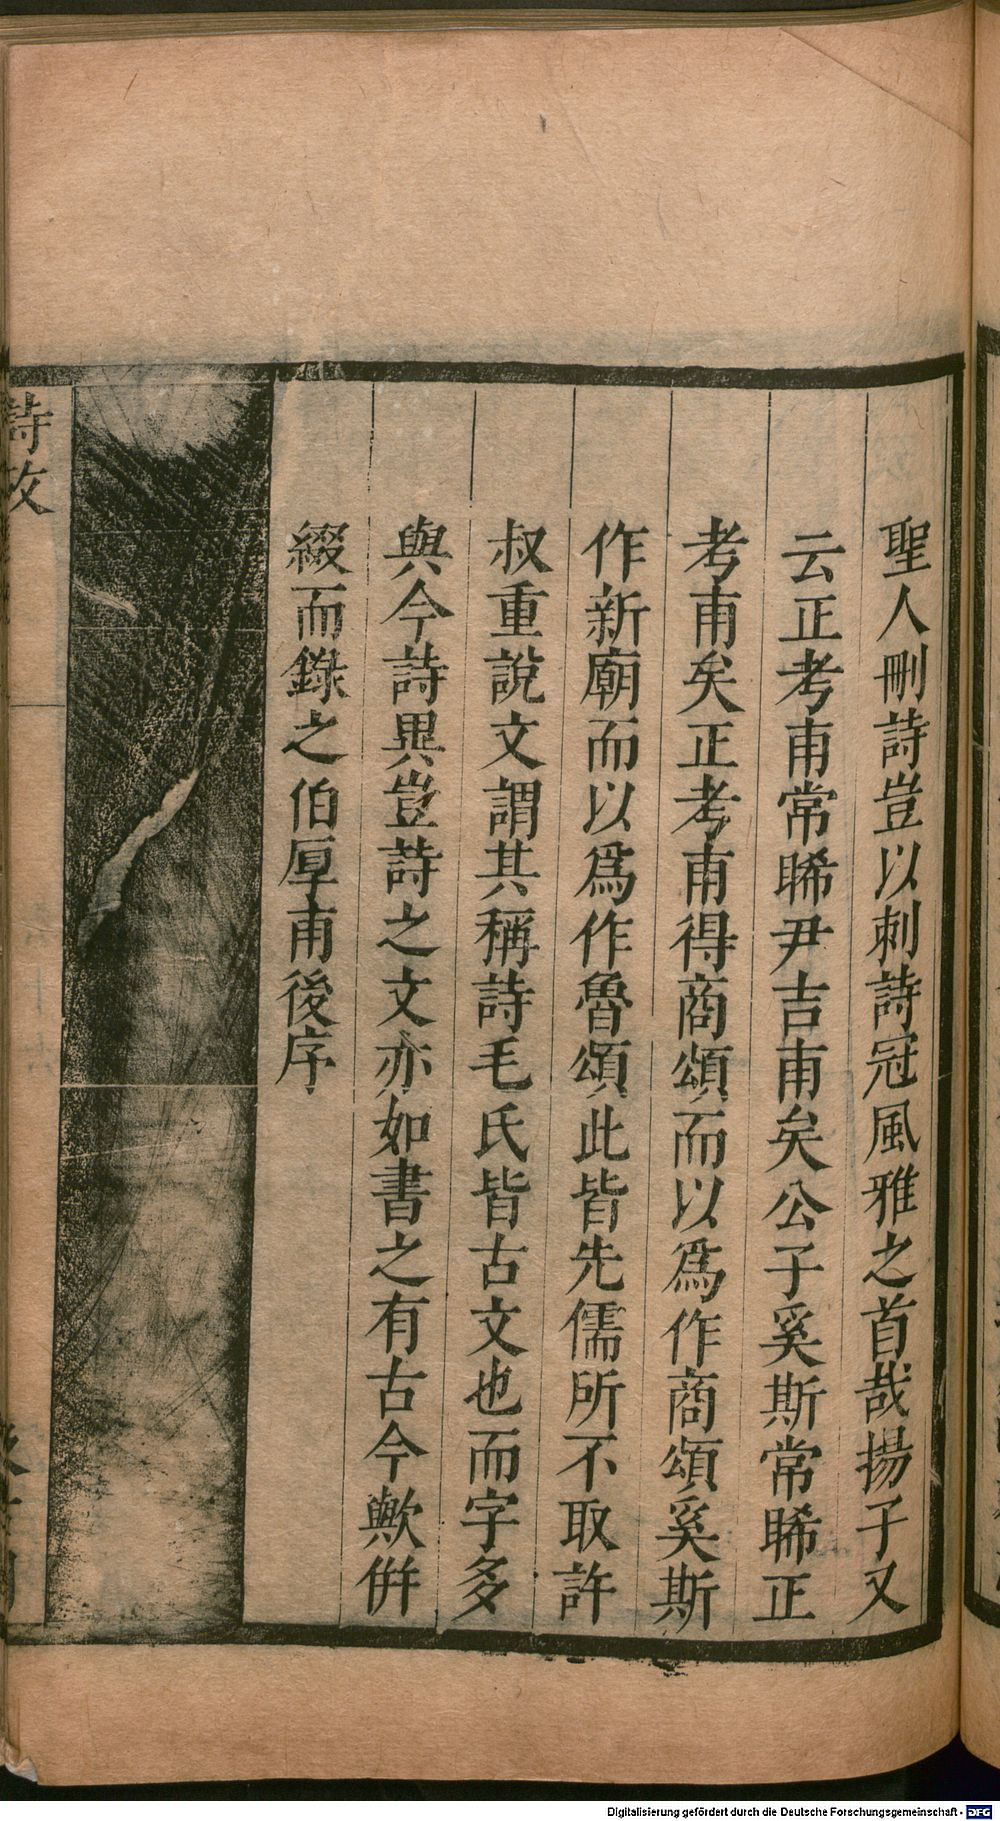 聖人刪詩豈以刺詩冠風雅之首哉揚子又
云正考甫常睎尹吉甫矣公子奚斯常睎正
考甫矣正考甫得商頌而以爲作商頌奚斯
作新廟而以爲作魯頌此皆先儒所不取許
叔重說文謂其稱詩毛氏皆古文也而字多
與今詩異豈詩之文亦如書之有古今歟倂
綴而錄之伯厚甫後序
詩攷
Digitalisierung gefördert durch die Deutsche Forschungsgemeinschaft - DFG